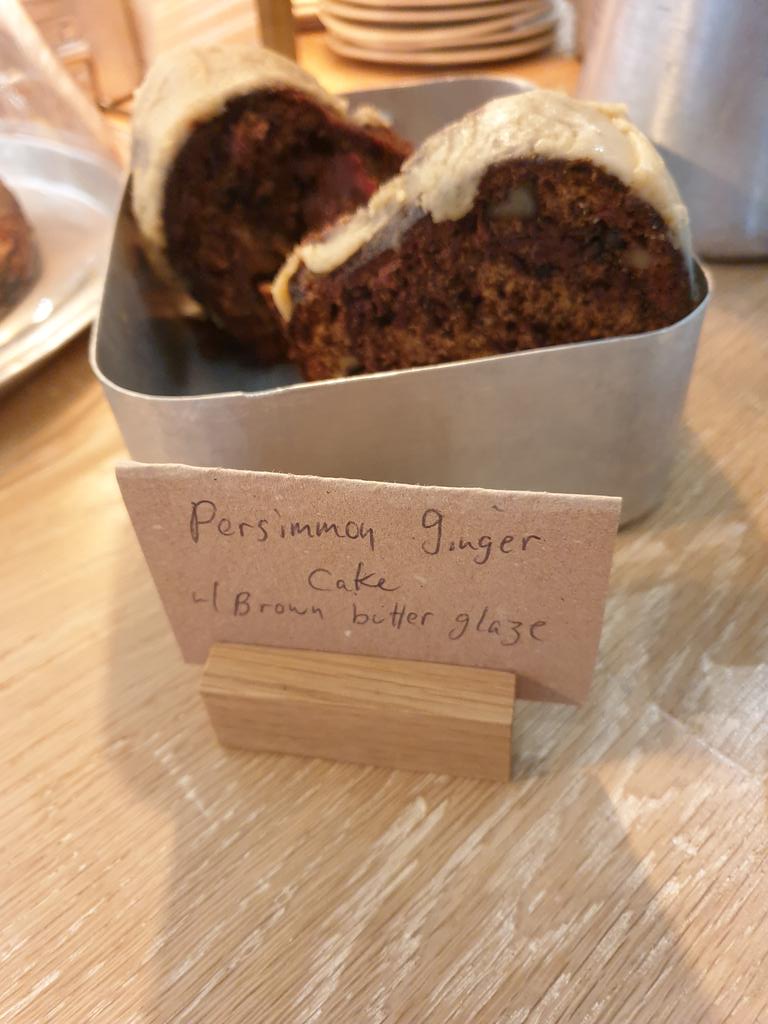 Persimmon Ginger
Cake
w/ Brown butter glaze